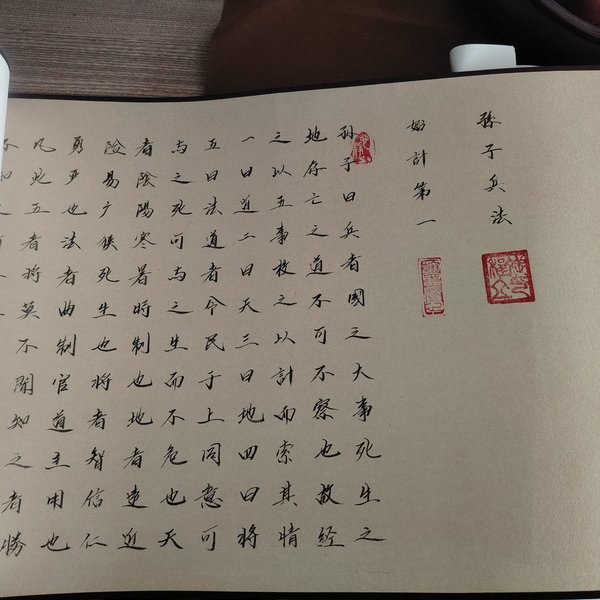 孫子兵法
始計第一
孫子曰兵者國之大事死生之
地存亡之道不可不察也故经
之以五事校之以計而索其情
一曰道二曰天三曰地四曰將
五曰法道者令民于上同意可
与之死可与之生而不危也天
者陰陽寒暑時制也地者遠近
险易广狭死生也将者智信仁
勇严也法者曲制官道主用也
凡此五者将莫不聞知之者勝